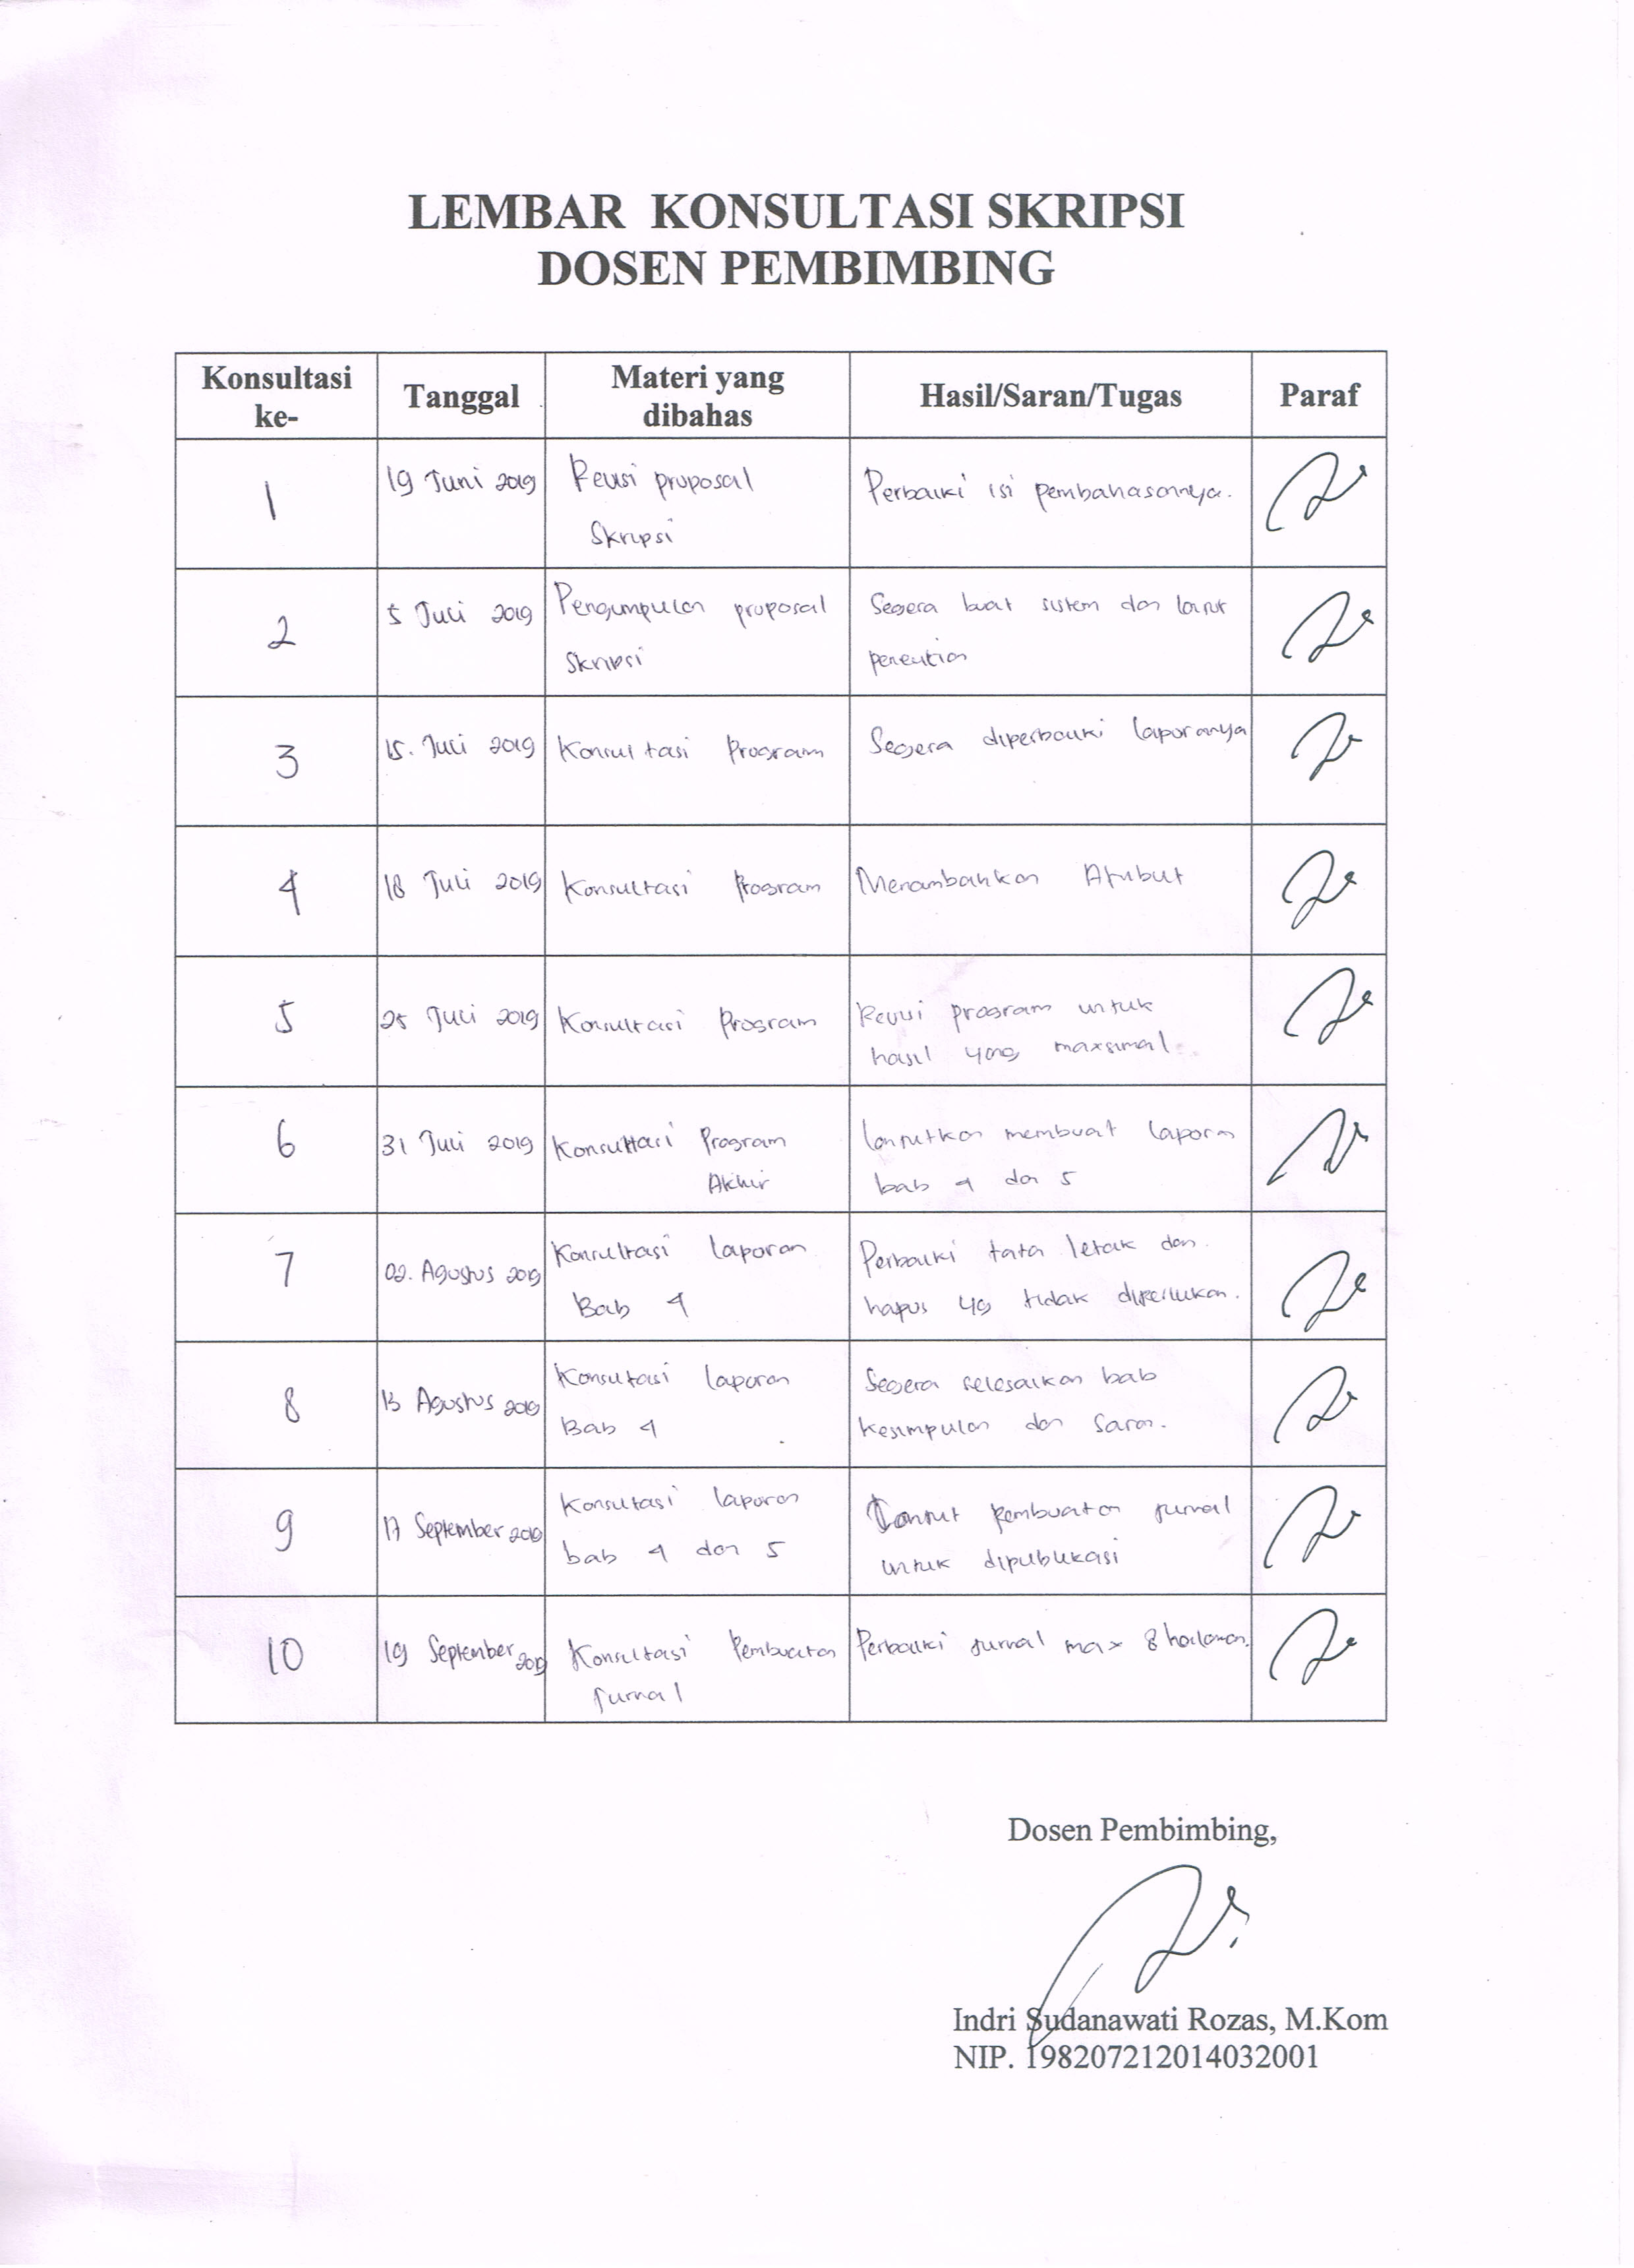 LEMBAR KONSULTASI SKRIPSI
DOSEN PEMBIMBING
Konsultasi ke- Tanggal Materi yang dibahas Hasil/Saran/Tugas Paraf
1 19 Juni 2019 Revisi proposal Perbaiki isi pembahasannya.
Skripsi
2 5 Juli 2019 Pengumpulan proposal Segera buat sistem dan lanjut
Skripsi penelitian
3 15. Juli 2019 Konsultasi Program Segera diperbaiki laporannya
4 18 Juli 2019 Konsultasi Program Menambahkan Atribut
5 25 Juli 2019 Konsultasi Program Revisi program untuk
hasil yang maxsimal.
6 31 Juli 2019 Konsultasi Program lanjutkan membuat laporan
Akhir bab 4 dan 5
7 02. Agustus 2019 Konsultasi laporan Perbaiki tata letak dan
Bab 4 hapus yg tidak diperlukan.
8 13 Agustus 2019 Konsultasi laporan Segera selesaikan bab
Bab 4 kesimpulan dan saran.
9 17 September 2019 Konsultasi laporan Lanjut pembuatan jurnal
bab 4 dan 5 untuk dipublikasi
10 19 September 2019 Konsultasi Pembuatan Perbaiki jurnal max 8 halaman.
jurnal
Dosen Pembimbing,
Indri Sudanawati Rozas, M.Kom
NIP. 198207212014032001